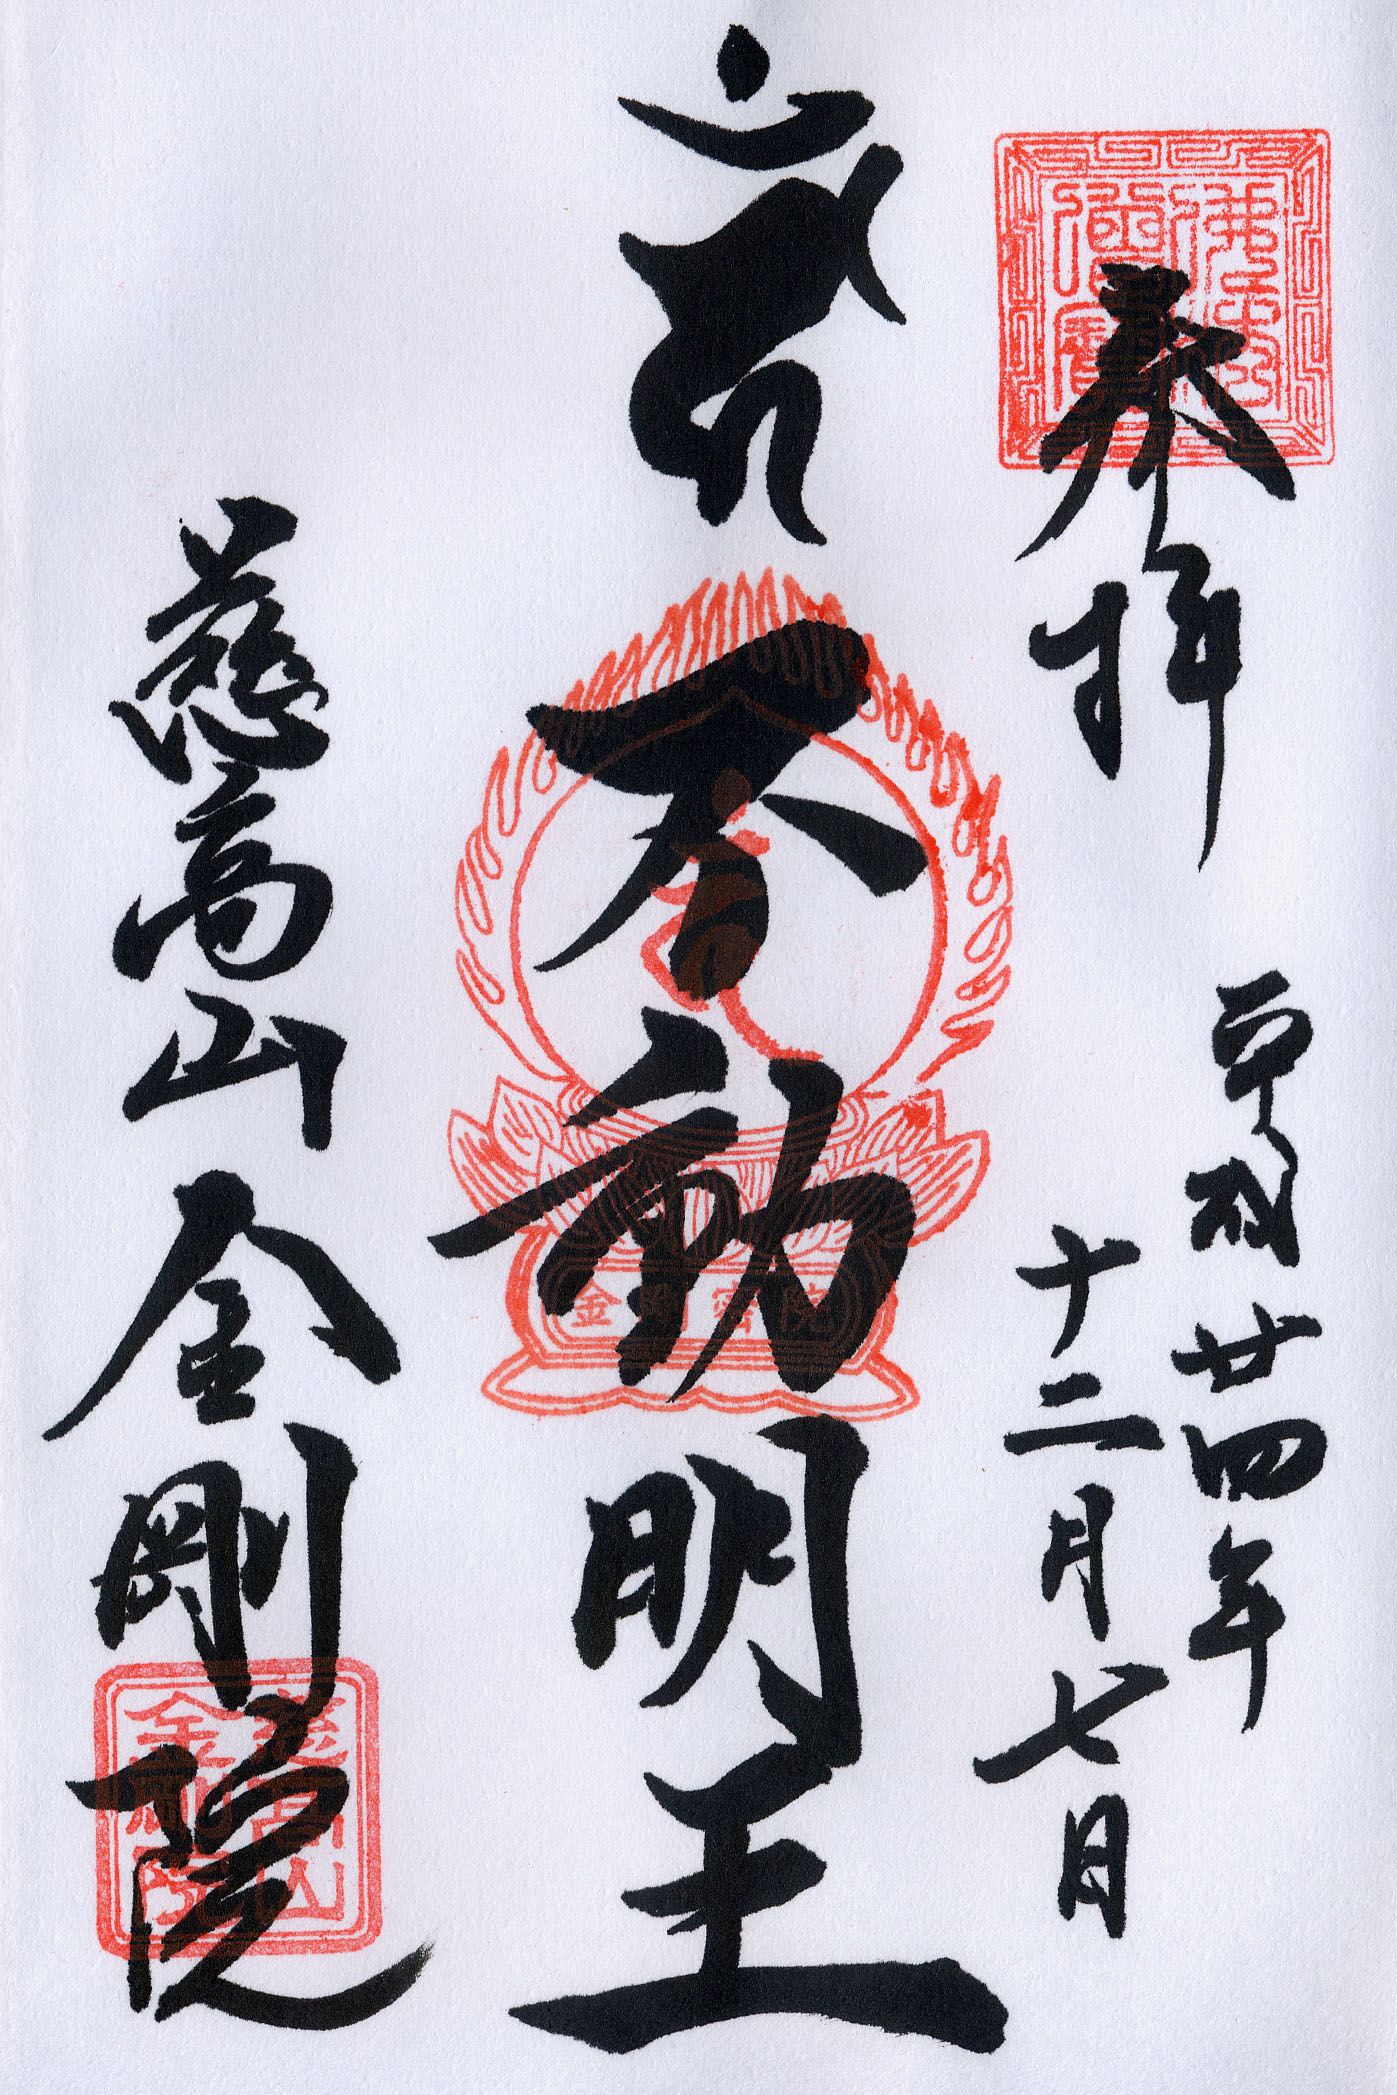 奉拝
平成廿四年
十二月七日
不動明王
慈高山金剛院
佛法僧寶
金剛密院
慈高山
金剛院